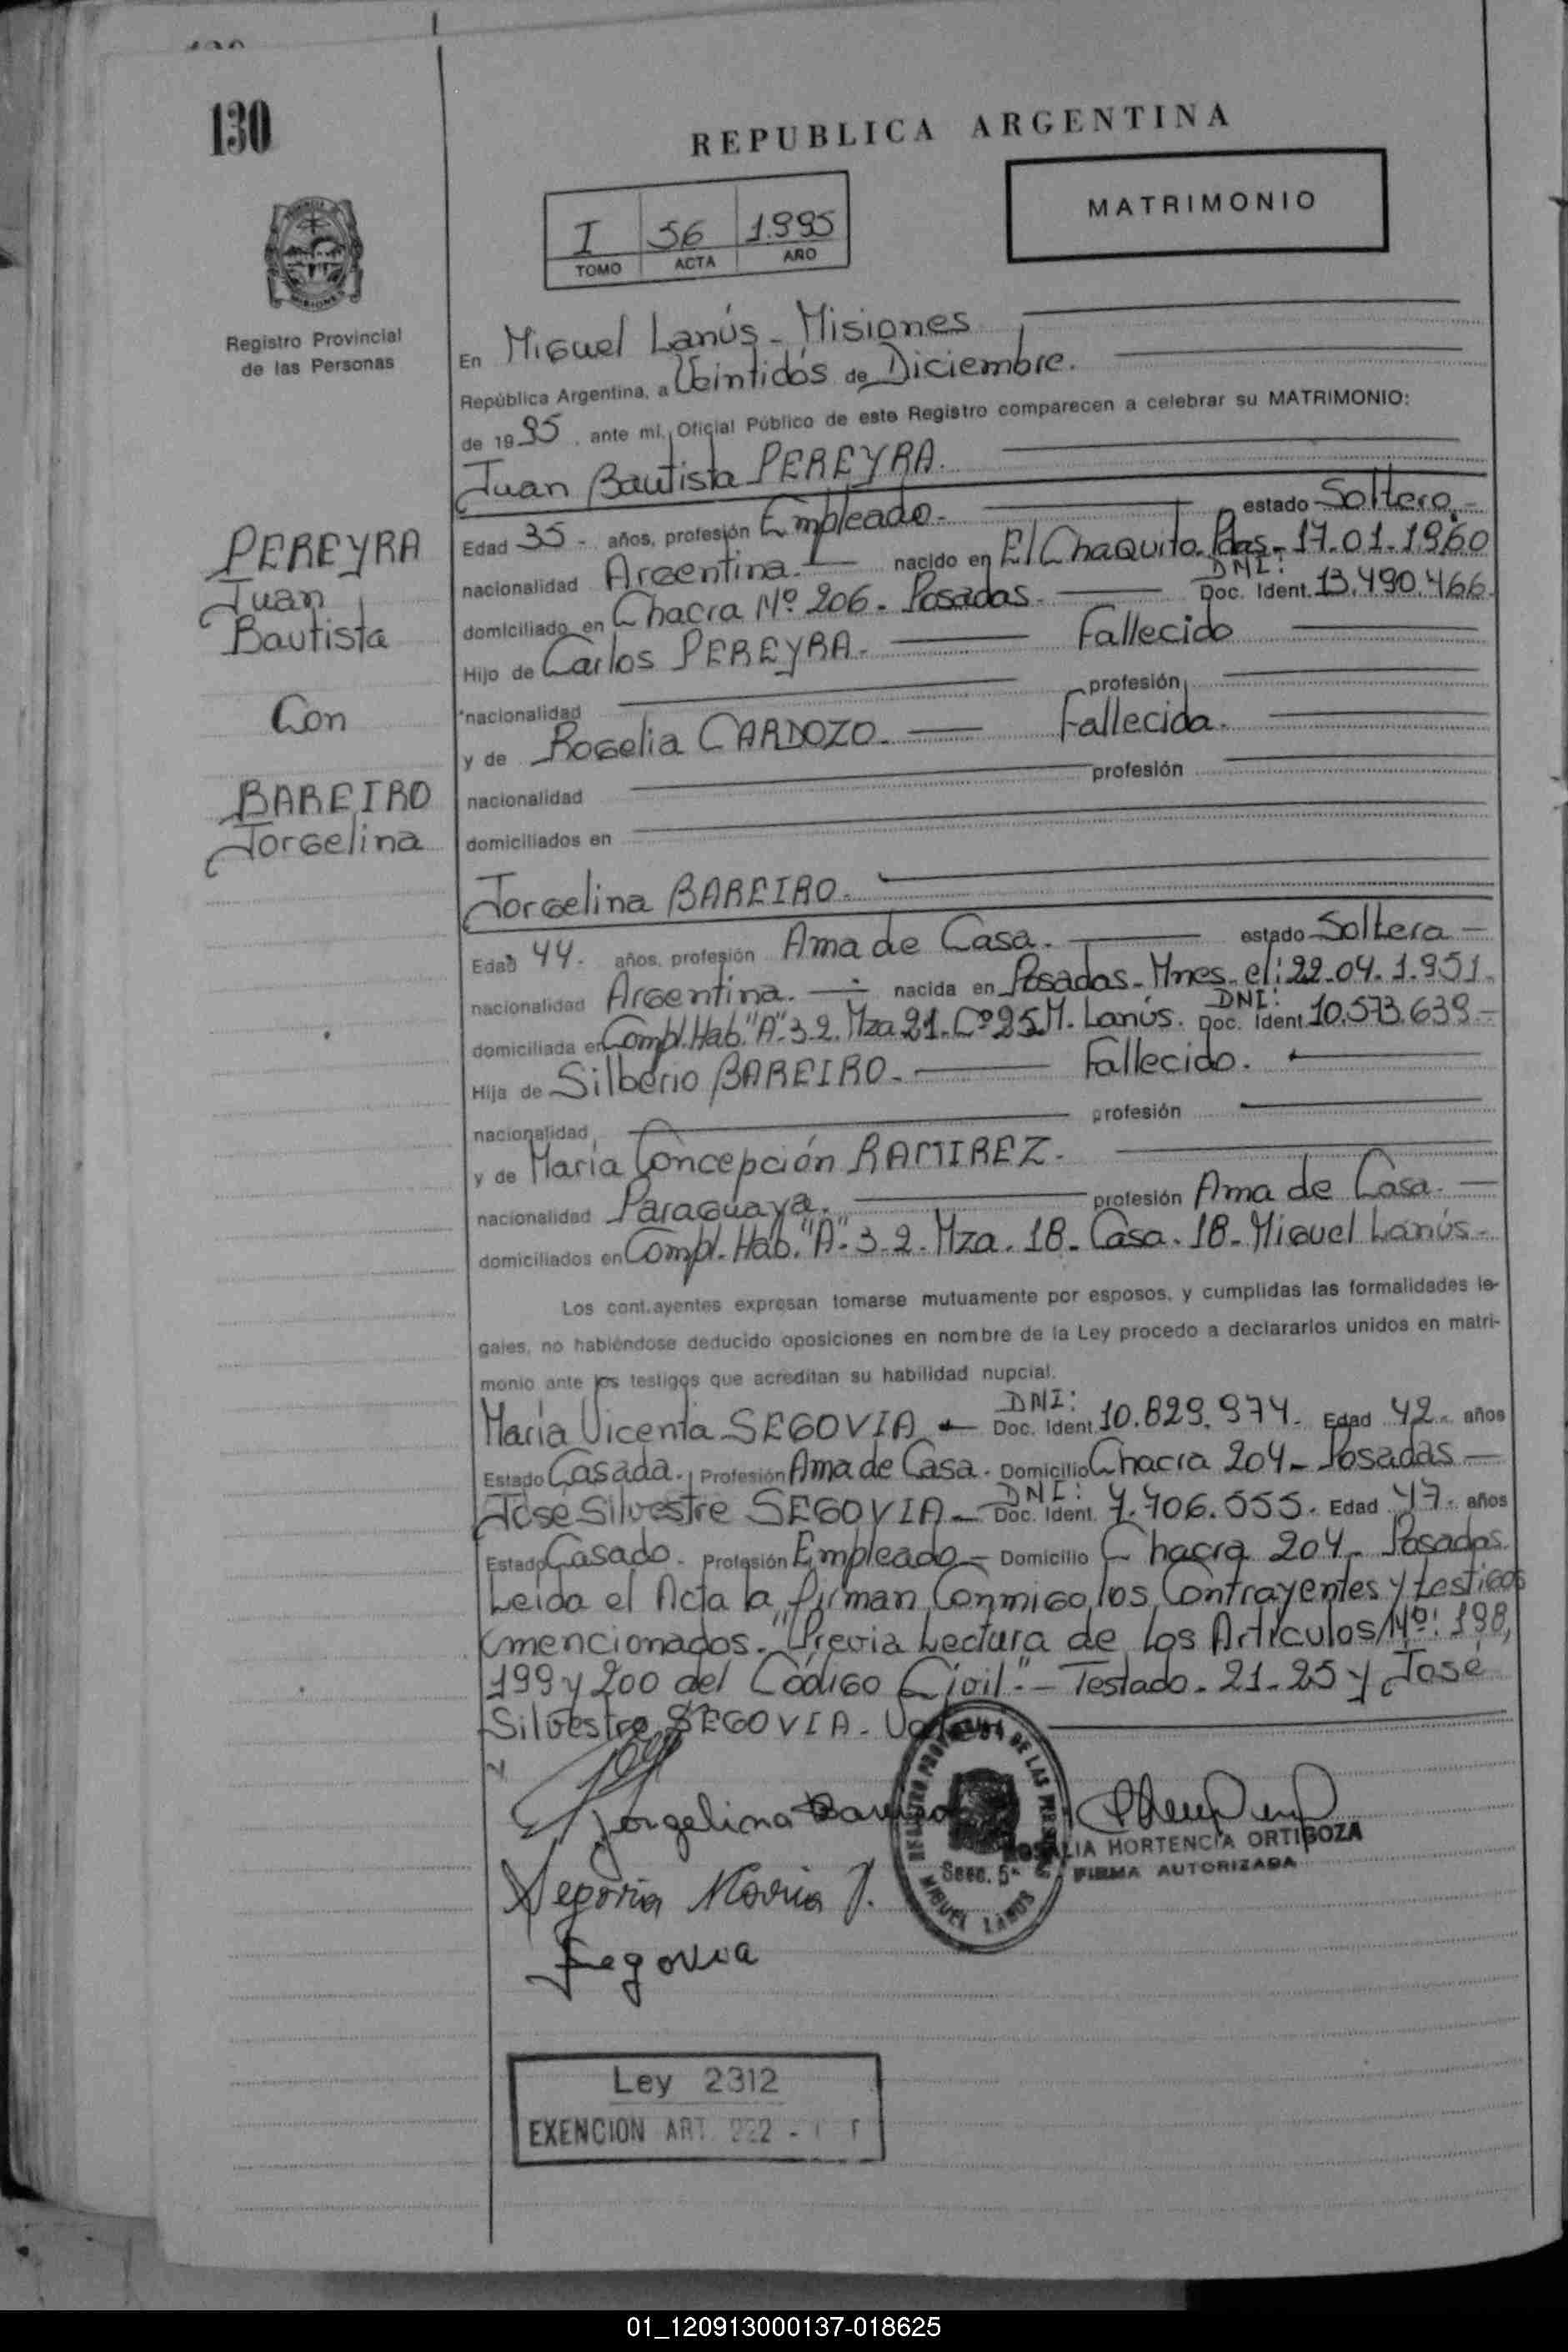 130
REPUBLICA ARGENTINA
MATRIMONIO
I 56 1.995
TOMO ACTA AÑO
Registro Provincial
de las Personas
En Miguel Lanús - Misiones
República Argentina, a Veintidós de Diciembre.
de 1995, ante mí, Oficial Público de este Registro comparecen a celebrar su MATRIMONIO:
Juan Bautista PEREYRA.
PEREYRA
Juan
Bautista
Con
BAREIRO
Jorgelina
Edad 35 - años, profesión Empleado - estado Soltero -
nacionalidad Argentina. - nacido en El Chaquito. Pdas - 17.01.1960
domiciliado en Chacra Nº 206 - Posadas - DNI: Doc. Ident. 13.490.466.
Hijo de Carlos PEREYRA - Fallecido
nacionalidad profesión
y de Rogelia CARDOZO - Fallecida.
nacionalidad profesión
domiciliados en
Jorgelina BAREIRO.
Edad 44. años, profesión Ama de Casa. estado Soltera -
nacionalidad Argentina. - nacida en Posadas - Mnes. el: 22.04.1.951.
domiciliada en Compl. Hab. "A" 3.2. Mza 21. Cº 25 M. Lanús. DNI: Doc. Ident. 10.573.639.-
Hija de Silberio BAREIRO - Fallecido.
nacionalidad profesión
y de María Concepción RAMIREZ -
nacionalidad Paraguaya. profesión Ama de Casa. -
domiciliados en Compl. Hab. "A" 3.2. Mza. 18 - Casa. 18 - Miguel Lanús -
Los cont.ayentes expresan tomarse mutuamente por esposos, y cumplidas las formalidades le-
gales, no habiéndose deducido oposiciones en nombre de la Ley procedo a declararlos unidos en matri-
monio ante los testigos que acreditan su habilidad nupcial.
María Vicenta SEGOVIA - DNI: Doc. Ident. 10.829.974. Edad 42 - años
Estado Casada. Profesión Ama de Casa. Domicilio Chacra 204 - Posadas -
José Silvestre SEGOVIA - DNI: Doc. Ident. 7.706.555. Edad 47. años
Estado Casado - Profesión Empleado - Domicilio Chacra 204 - Posadas.
Leída el Acta la firman Conmigo los Contrayentes y testigos
mencionados. "Previa Lectura de los Artículos Nº: 198,
199 y 200 del Código Civil" - Testado - 21 - 25 y José
Silvestre SEGOVIA -
Jorgelina Bareiro
Segovia María V.
Segovia
REGISTRO PROVINCIAL DE LAS PERSONAS
Secc. 5ª
MIGUEL LANUS
ROSALIA HORTENCIA ORTIGOZA
FIRMA AUTORIZADA
Ley 2312
EXENCION ART. 222 -
01_120913000137-018625